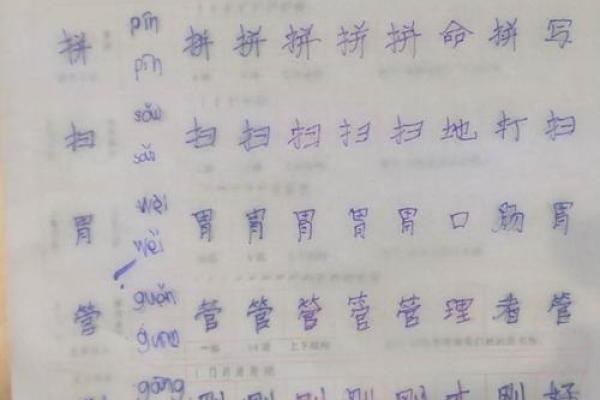 拼 pīn 拼 拼 拼 拼 拼 命 拼 写
pīn
扫 sǎo 扫 扫 扫 扫 扫 地 打 扫
sǎo
胃 wèi 胃 胃 胃 胃 胃 口 肠 胃
wèi
管 guǎn 管 管 管 管 管 理 者 管
guǎn
刚 gāng 刚 刚 刚 刚 刚 才 刚 好